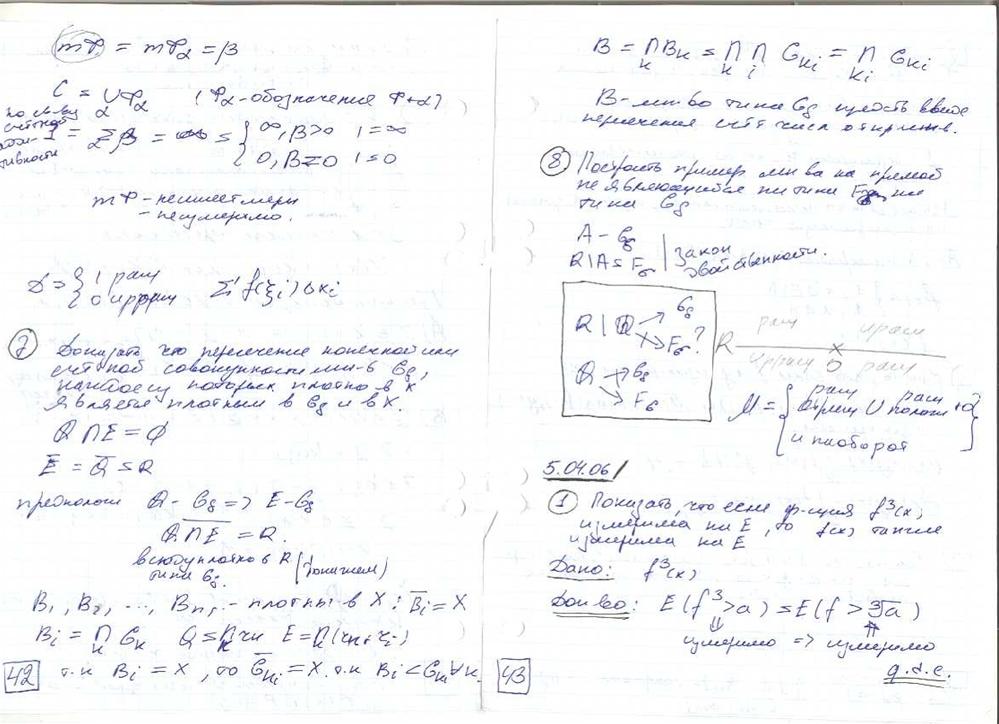 mφ = mφ₂ = β
C = ∪φ₂ (φ₂-обозначение φ+α)
по св-ву счётной адди-тивности 1 = Σβ = = { ∞, β>0 1=∞
0, β=0 1=0
mφ - не имеет меры
- неизмеримо.
D = { 1 рац
0 иррац Σ f(ξi)Δxi
⑦ Доказать что пересечение конечной или
счётной совокупности мн-в Gδ,
каждое из которых плотно в X
является плотным в Gδ и в X.
Q∩E = ∅
E̅ = Q̅ = R
предположи Q - Gδ => E - Gδ
Q∩E = R.
всюду плотно в R
типа Gδ. (докажем)
B₁, B₂, ..., Bn, - плотны в X : B̅i = X
Bi = ∩ Gk Q = ∩ rn E = ∩(rn+ri)
k
т.к Bi = X, то G̅ki = X. т.к Bi < Gki ∀k.
42
B = ∩ Bk = ∩ ∩ Gki = ∩ Gki
k k i ki
B - мн-во типа Gδ
пересечение счёт числа открыт мн-в.
⑧ Построить пример мн-ва на прямой
не являющееся ни типа Fσ, ни
типа Gδ
A - Gδ
R\A = Fσ | Закон двойственности.
R \ Q → Gδ
→ Fσ ?
Q → Gδ
→ Fσ
R рац ирац
иррац 0 рац
M = { рац рац
и наоборот }
5.04.06
① Показать, что если ф-ция f³(x)
измерима на E, то f(x) также
измерима на E
Дано: f³(x)
Док-во: E(f³>a) = E(f > ∛a)
измеримо => измеримо
q.d.e.
43